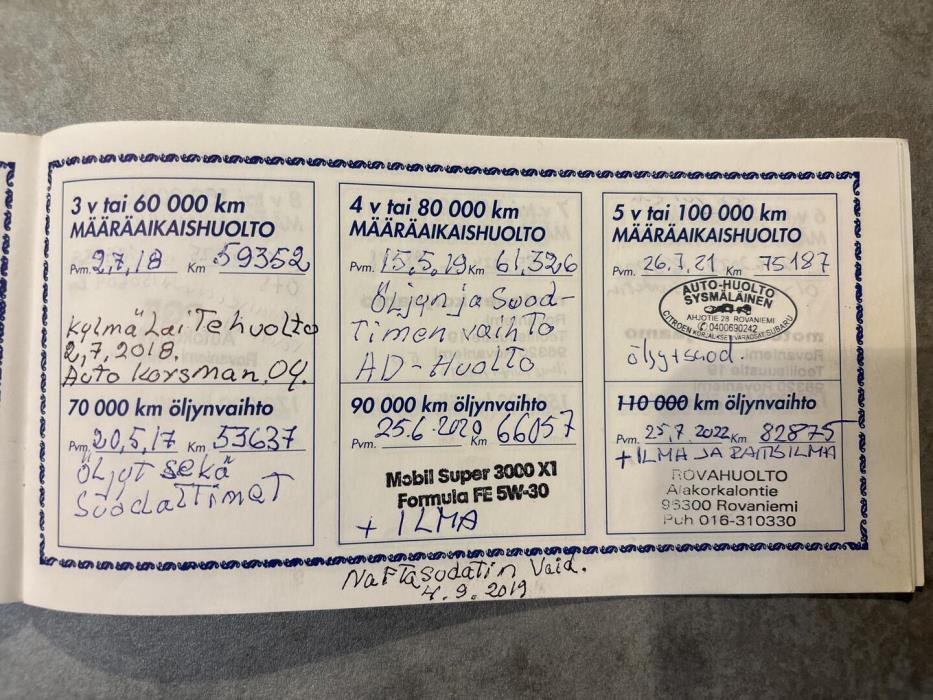 3 v tai 60 000 km
MÄÄRÄAIKAISHUOLTO
Pvm. 2,7,18 Km 59352
Kylmä Lai Te huolto
2,7,2018.
Auto Korsman. Oy.
70 000 km öljynvaihto
Pvm. 20,5,17 Km 53637
Öljyt sekä
SuodaTTimaT
4 v tai 80 000 km
MÄÄRÄAIKAISHUOLTO
Pvm. 15,5,19 Km 61,326
Öljyn ja Suod-
Timen vaihto
AD-Huolto
90 000 km öljynvaihto
Pvm. 25.6.2020 Km 66057
Mobil Super 3000 X1
Formula FE 5W-30
+ ILMA
5 v tai 100 000 km
MÄÄRÄAIKAISHUOLTO
Pvm. 26.7.21 Km 75187
AUTO-HUOLTO
SYSMÄLÄINEN
AHJOTIE 28 ROVANIEMI
0400690242
CITROEN VARAOSAT SUBARU
öljy+suod.
110 000 km öljynvaihto
Pvm. 25,7.2022 Km 82875
+ ILMA JA RAITISILMA
ROVAHUOLTO
Alakorkalontie
96300 Rovaniemi
Puh 016-310330
NafTasudatin Vaid.
4.9.2019